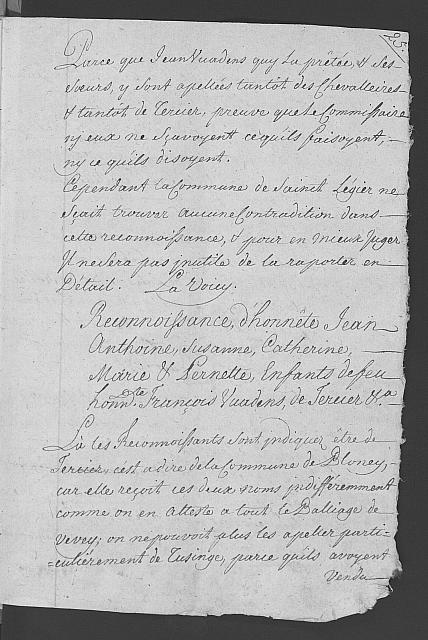 95.
Parce que Jean Vuadens quy la prêtée, & ses
sœurs, y sont apellées tantôt des Chevalleires
& tantôt de Tercier, preuve que le Commissaire
ny eux ne sçavoyent ce quils faisoyent,
ny ce quils disoyent.
Cependant la Commune de Sainct Légier ne
sçait trouver aucune Contradition dans
cette reconnoissance, & pour en mieux Juger
Il ne sera pas inutile de la raporter en
Détail. La Voicy.
Reconnoissance, d'honnête Jean
Anthoine, Susanne, Catherine,
Marie & Pernette, Enfants de feu
honnête François Vuadens, de Tercier &a
Là les Reconnoissants sont indiquez être de
Tercier, c'est a dire de la Commune de Bloney,
car elle reçoit ces deux noms indifféremment
comme on en Atteste a tout le Balliage de
Vevey; on ne pouvoit plus les apeller parti=
=culiérement de Tusinge, parce quils avoyent
Vendu